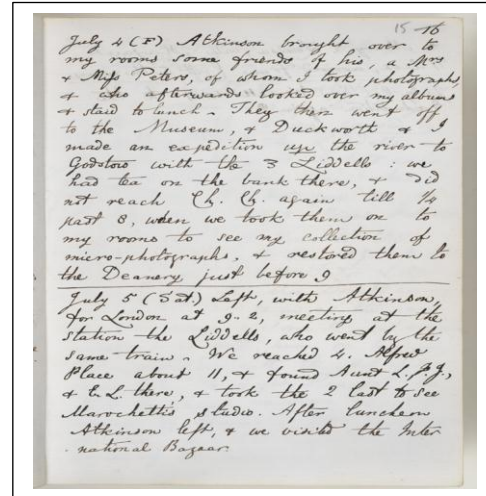 15 16
July 4 (F) Atkinson brought over to
my rooms some friends of his, a Mrs
& Miss Peters, of whom I took photographs,
& who afterwards looked over my albums
& staid to lunch. They then went off
to the Museum, & Duckworth & I
made an expedition up the river to
Godstow with the 3 Liddells: we
had tea on the bank there, & did
not reach Ch. Ch. again till 1/4
past 8, when we took them on to
my rooms to see my collection of
micro-photographs, & restored them to
the Deanery just before 9
July 5 (Sat.) Left, with Atkinson,
for London at 9.2, meeting at the
station the Liddells, who went by the
same train. We reached 4. Alfred
Place about 11, & found Aunt L. P. J,
& E. L. there, & took the 2 last to see
Marochetti's studio. After luncheon
Atkinson left, & we visited the Inter
-national Bazaar.